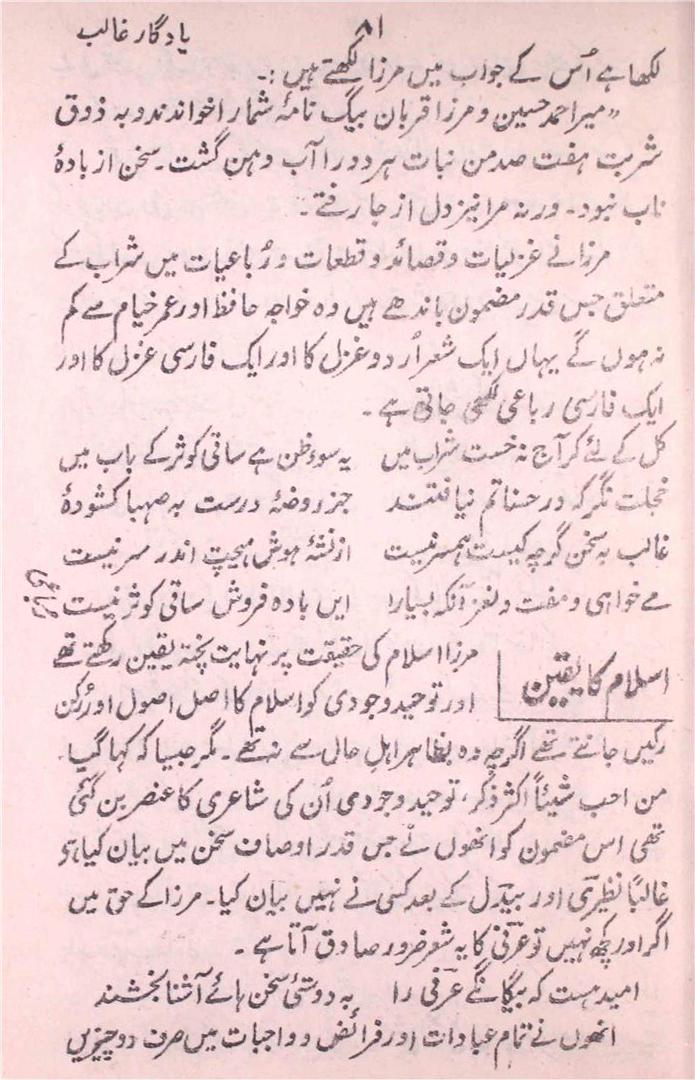 ۸۱
یادگار غالب
لکھا ہے اُس کے جواب میں مرزا لکھتے ہیں :۔
"میر احمد حسین و مرزا قربان بیگ نامۂ شمارا خواندند و بہ ذوق
شربت ہفت صد من نبات ہر دو را آب دہن گشت۔ سخن از بادۂ
ناب نبود۔ ورنہ مرا نیز دل از جا رفتے۔
مرزا نے غزلیات و قصائد و قطعات و رُباعیات میں شراب کے
متعلق جس قدر مضمون باندھے ہیں وہ خواجہ حافظ اور عمر خیام سے کم
نہ ہوں گے یہاں ایک شعر اُردو غزل کا اور ایک فارسی غزل کا اور
ایک فارسی رباعی لکھی جاتی ہے۔
کل کے لئے کر آج نہ خست شراب میں یہ سوءِ ظن ہے ساقی کوثر کے باب میں
خجلت نگر کہ در حسناتم نیافتند جز روضۂ درست بہ صہبا کشودۂ
غالب بہ سخن گرچہ کیست ہمسر نیست از نشۂ ہوش ہیچت اندر سر نیست
مے خواہی و مفت و نغز وانگہ بسیار ایں بادہ فروش ساقی کوثر نیست
رباعی
اسلام کا یقین
مرزا اسلام کی حقیقت پر نہایت پختہ یقین رکھتے تھے
اور توحید وجودی کو اسلام کا اصل اصول اور رُکن
رکیں جانتے تھے اگرچہ وہ بظاہر اہل حال سے نہ تھے۔ مگر جیسا کہ کہا گیا۔
من احب شیئاً اکثر ذکر، توحید وجودی اُن کی شاعری کا عنصر بن گئی
تھی اس مضمون کو انھوں نے جس قدر اوصاف سخن میں بیان کیا ہو
غالباً نظیری اور بیدل کے بعد کسی نے نہیں بیان کیا۔ مرزا کے حق میں
اگر اور کچھ نہیں تو عرفی کا یہ شعر ضرور صادق آتا ہے۔
امید ہست کہ بیگانگے عرفی را بہ دوستئ سخن ہائے آشنا بخشند
انھوں نے تمام عبادات اور فرائض و واجبات میں صرف دو چیزیں